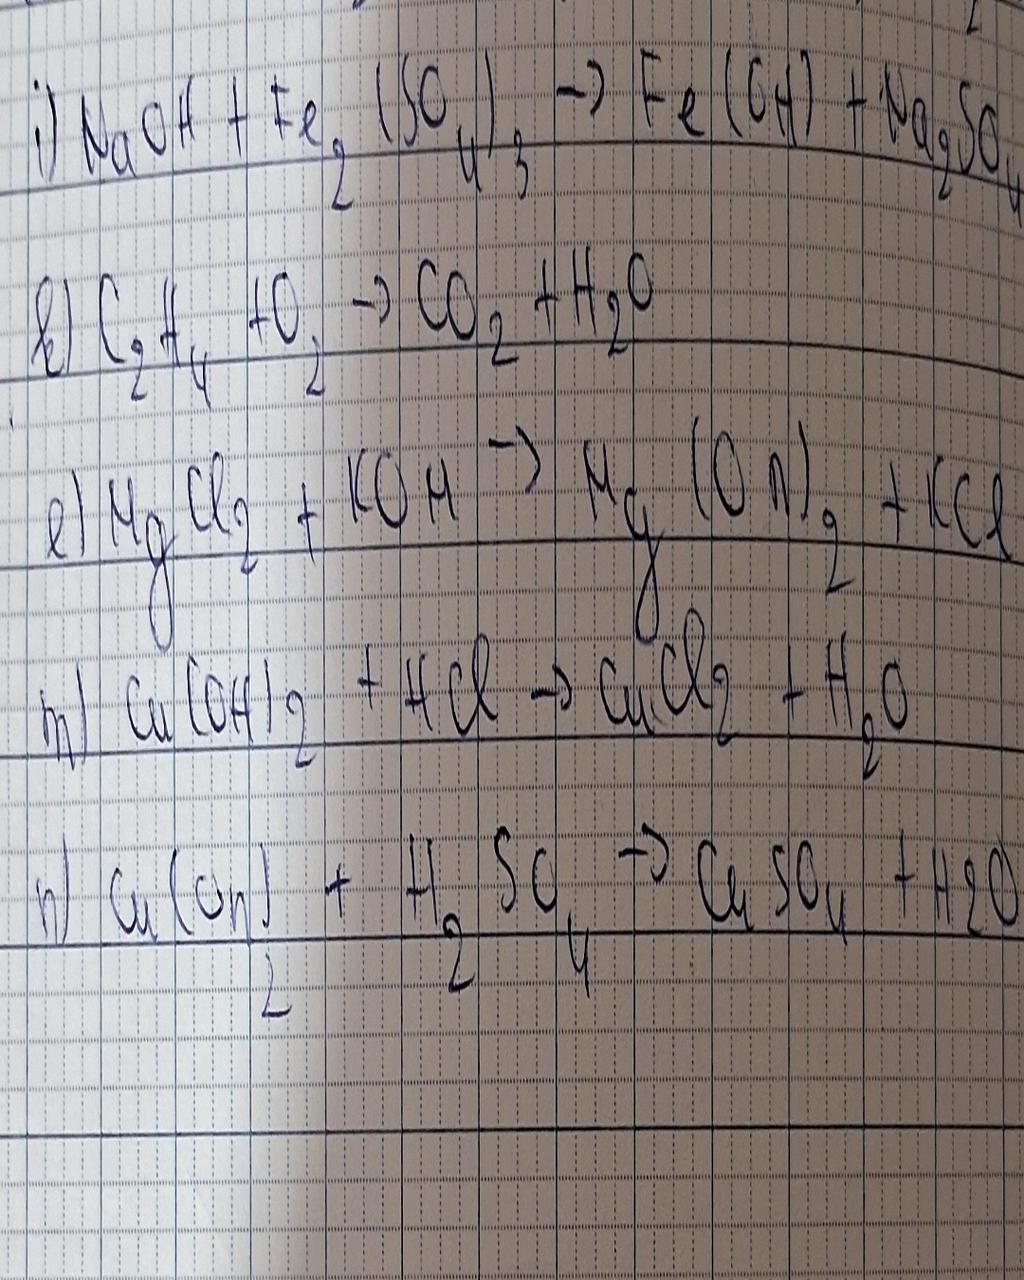 i) NaOH + Fe₂(SO₄)₃ → Fe(OH) + Na₂SO₄
k) C₂H₄ + O₂ → CO₂ + H₂O
l) MgCl₂ + KOH → Mg(OH)₂ + KCl
m) Cu(OH)₂ + HCl → CuCl₂ + H₂O
n) Cu(OH)₂ + H₂SO₄ → CuSO₄ + H2O